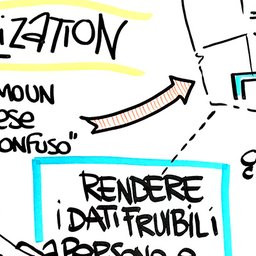 IZATION
MO UN
ESE
ONFUSO"
RENDERE
i DATI FRUIBILI
PERSONE